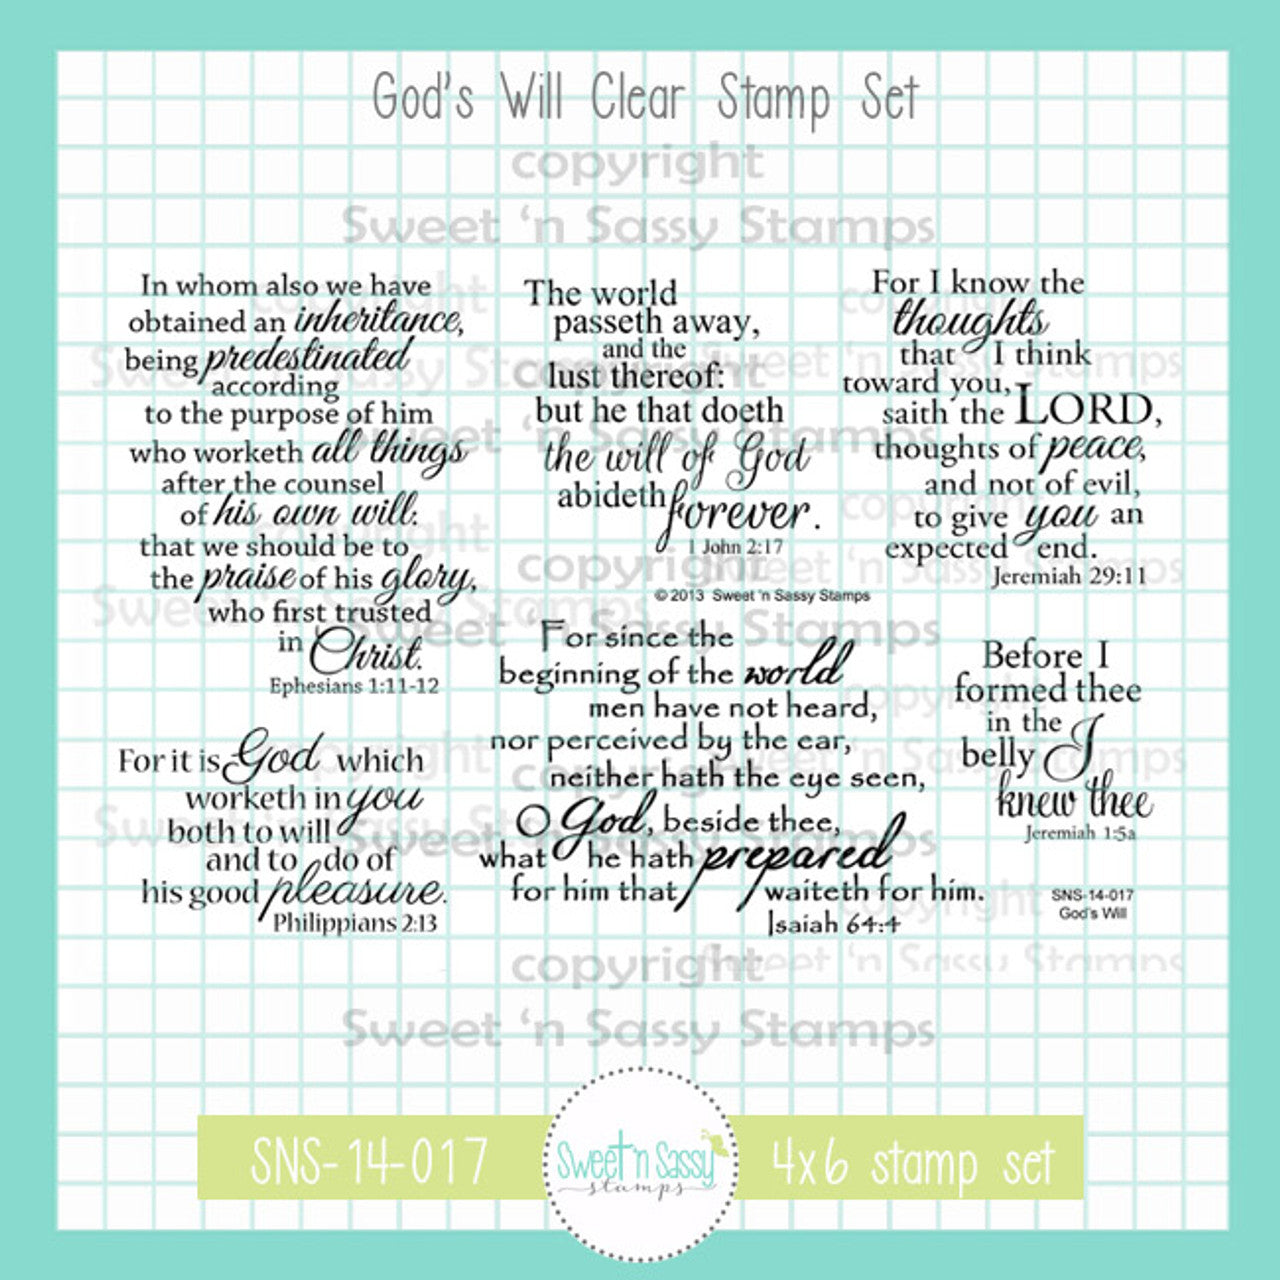 God's Will Clear Stamp Set
copyright
Sweet 'n Sassy Stamps
In whom also we have
obtained an inheritance,
being predestinated
according
to the purpose of him
who worketh all things
after the counsel
of his own will:
that we should be to
the praise of his glory,
who first trusted
in Christ.
Ephesians 1:11-12
The world
passeth away,
and the
lust thereof:
but he that doeth
the will of God
abideth forever.
1 John 2:17
© 2013 Sweet 'n Sassy Stamps
For I know the
thoughts
that I think
toward you,
saith the LORD,
thoughts of peace,
and not of evil,
to give you an
expected end.
Jeremiah 29:11
For it is God which
worketh in you
both to will
and to do of
his good pleasure.
Philippians 2:13
For since the
beginning of the world
men have not heard,
nor perceived by the ear,
neither hath the eye seen,
O God, beside thee,
what he hath prepared
for him that waiteth for him.
Isaiah 64:4
Before I
formed thee
in the
belly I
knew thee
Jeremiah 1:5a
SNS-14-017
God's Will
copyright
Sweet 'n Sassy Stamps
SNS-14-017
Sweet 'n Sassy
stamps
4x6 stamp set